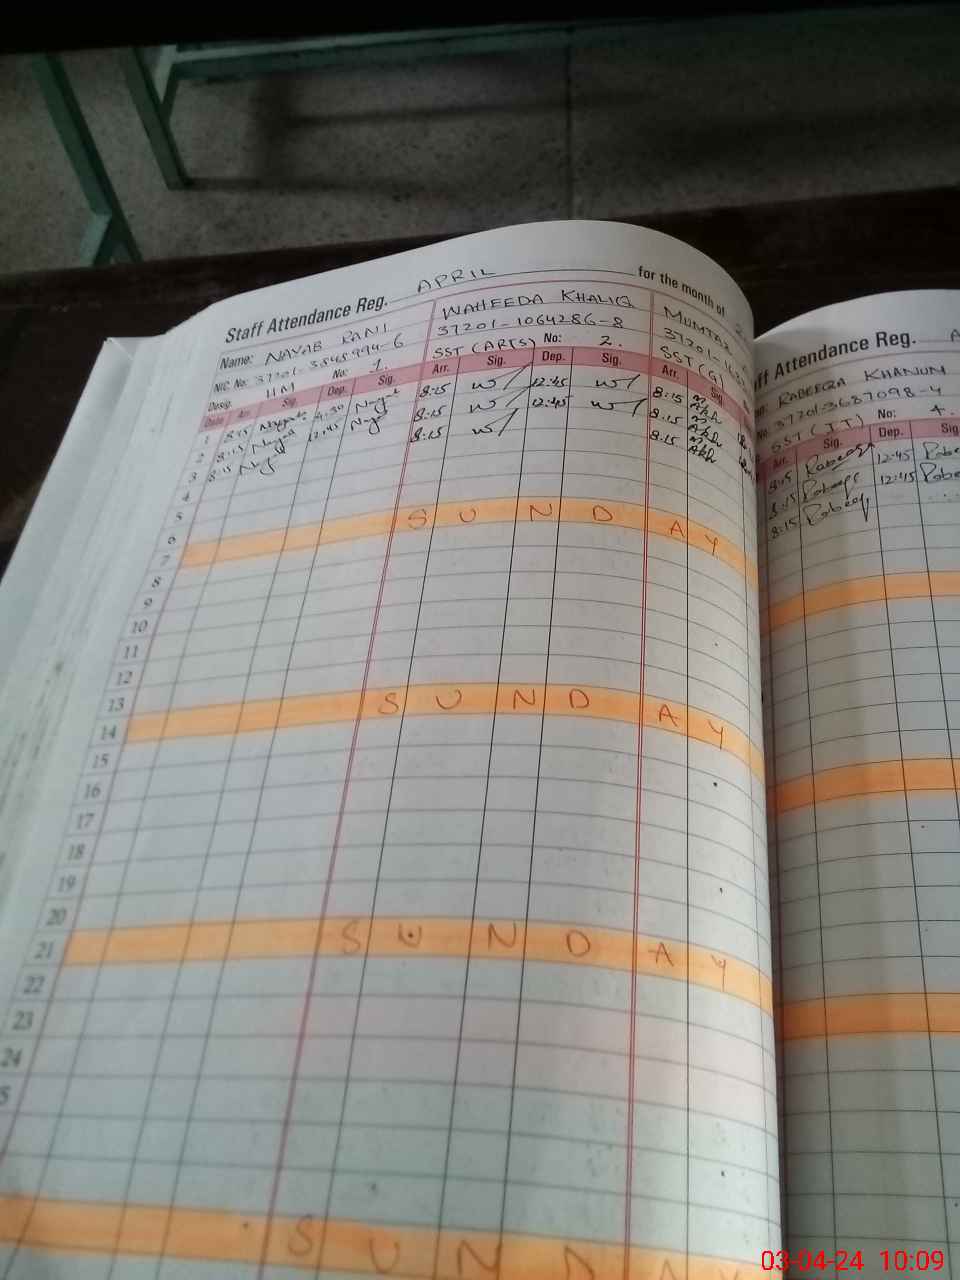 Staff Attendance Reg. APRIL for the month of
Name: NAYAB RANI WAHEEDA KHALIQ MUMTAZ
NIC No: 37201-1064286-8 37201-
Desig. HM No: 1. SST (ARTS) No: 2. SST (G)
Date Arr. Sig. Dep. Sig. Arr. Sig. Dep. Sig. Arr. Sig.
1 8:15 4:30 8:15 12:45 8:15
2 8:15 12:45 8:15 12:45 8:15
3 8:15 8:15 8:15
4
5
6
7 SUNDAY
8
9
10
11
12
13
14 SUNDAY
15
16
17
18
19
20
21 SUNDAY
22
23
24
5
SUNDA
ff Attendance Reg. A
RABEEQA KHANUM
No. 37201-3687098-4
SST (IT) No: 4.
Arr. Sig. Dep. Sig
8:15 12:45
8:15 12:45
8:15
03-04-24 10:09